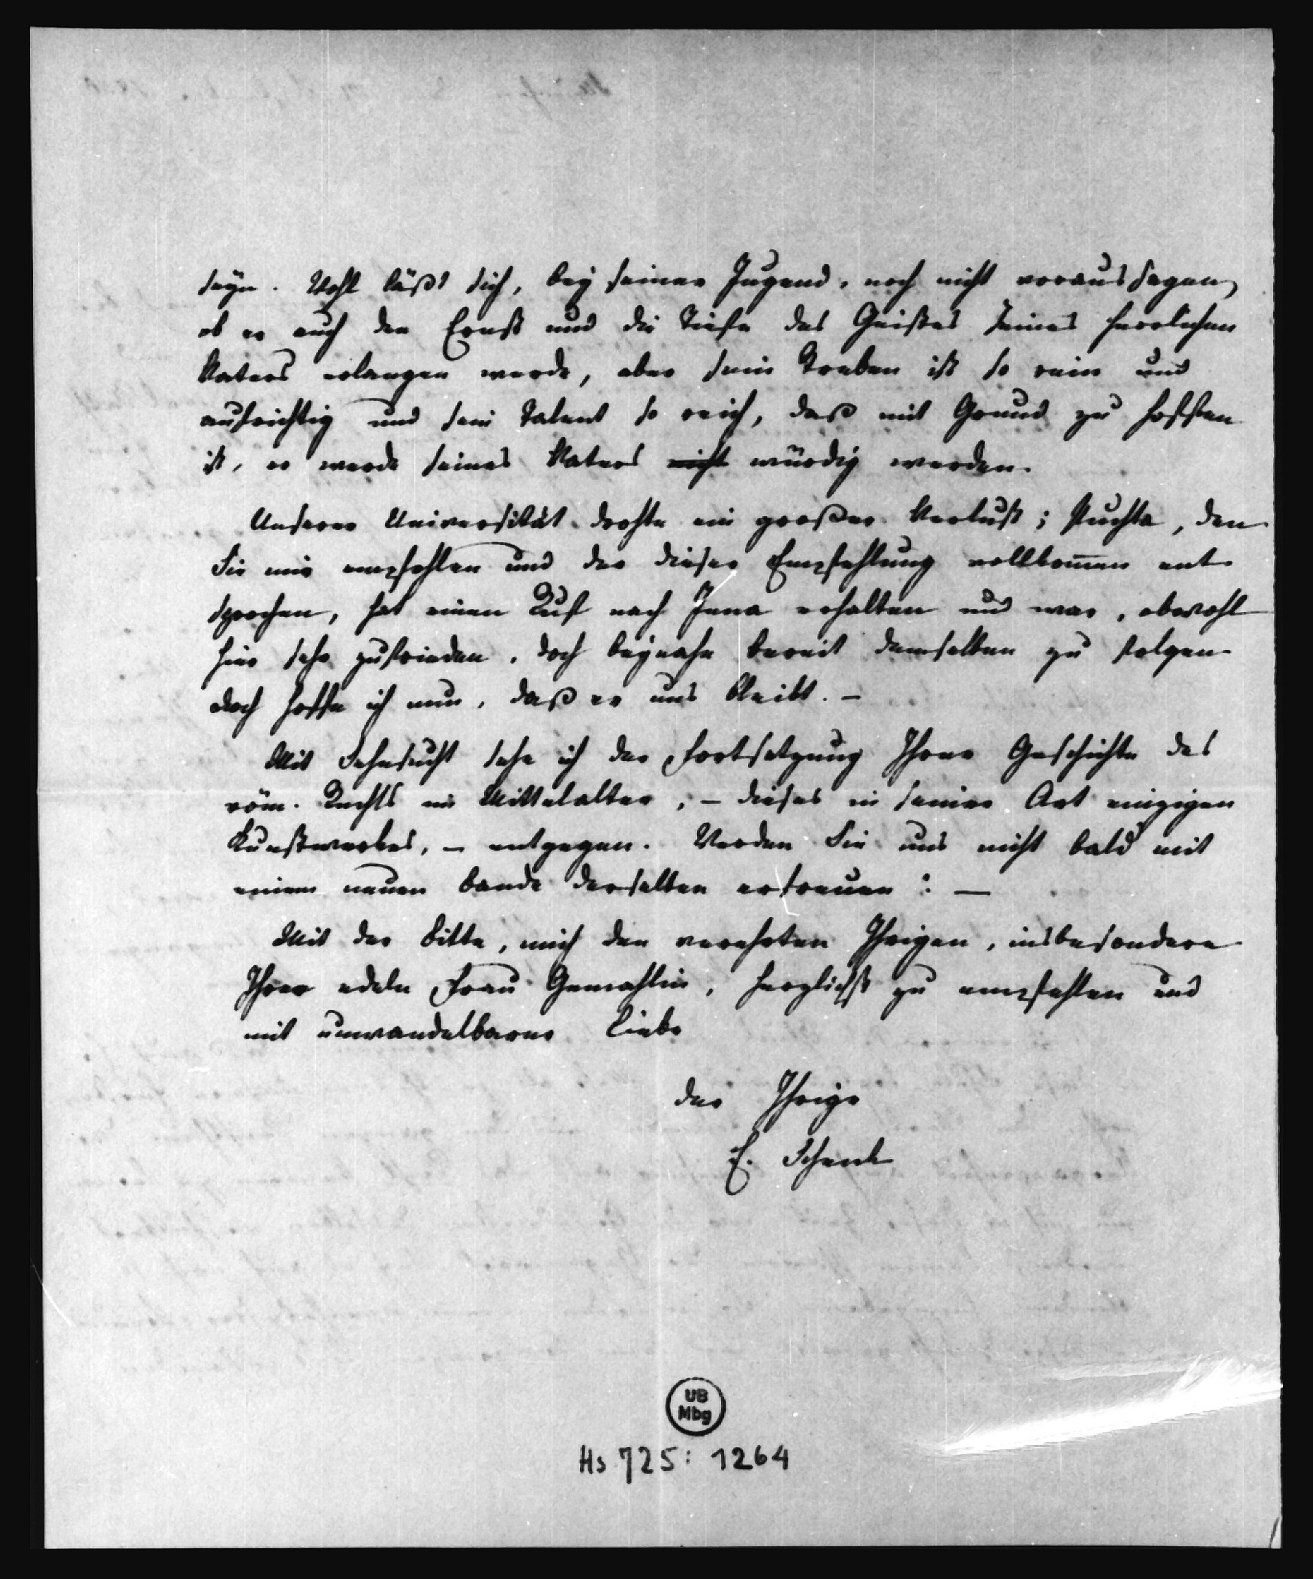 seyn. Wohl läßt sich, bey seiner Jugend, noch nicht voraussagen,
ob er auch den Ernst und die Tiefe des Geistes seines herrlichen
Vaters erlangen werde, aber sein Streben ist so rein und
aufrichtig und sein Talent so reich, daß mit Grund zu hoffen
ist, er werde seines Vaters nicht würdig werden.
Unserer Universität drohte ein großer Verlust; Puchta, den
Sie mir empfohlen und der dieser Empfehlung vollkommen ent
sprochen, hat einen Ruf nach Jena erhalten und war, obwohl
hier sehr zufrieden, doch beynahe bereit demselben zu folgen
doch hoffe ich nun, daß er uns bleibt. –
Mit Sehnsucht sehe ich der Fortsetzung Ihrer Geschichte des
röm. Rechts im Mittelalter, – dieses in seiner Art einzigen
Kunstwerkes, – entgegen. Werden Sie uns nicht bald mit
einem neuen Bande derselben erfreuen? –
Mit der Bitte, mich den verehrten Ihrigen, insbesondere
Ihrer edeln Frau Gemahlin, herzlichst zu empfehlen und
mit unwandelbarer Liebe
der Ihrige
E. Schenk
UB
Mbg
Hs 725: 1264